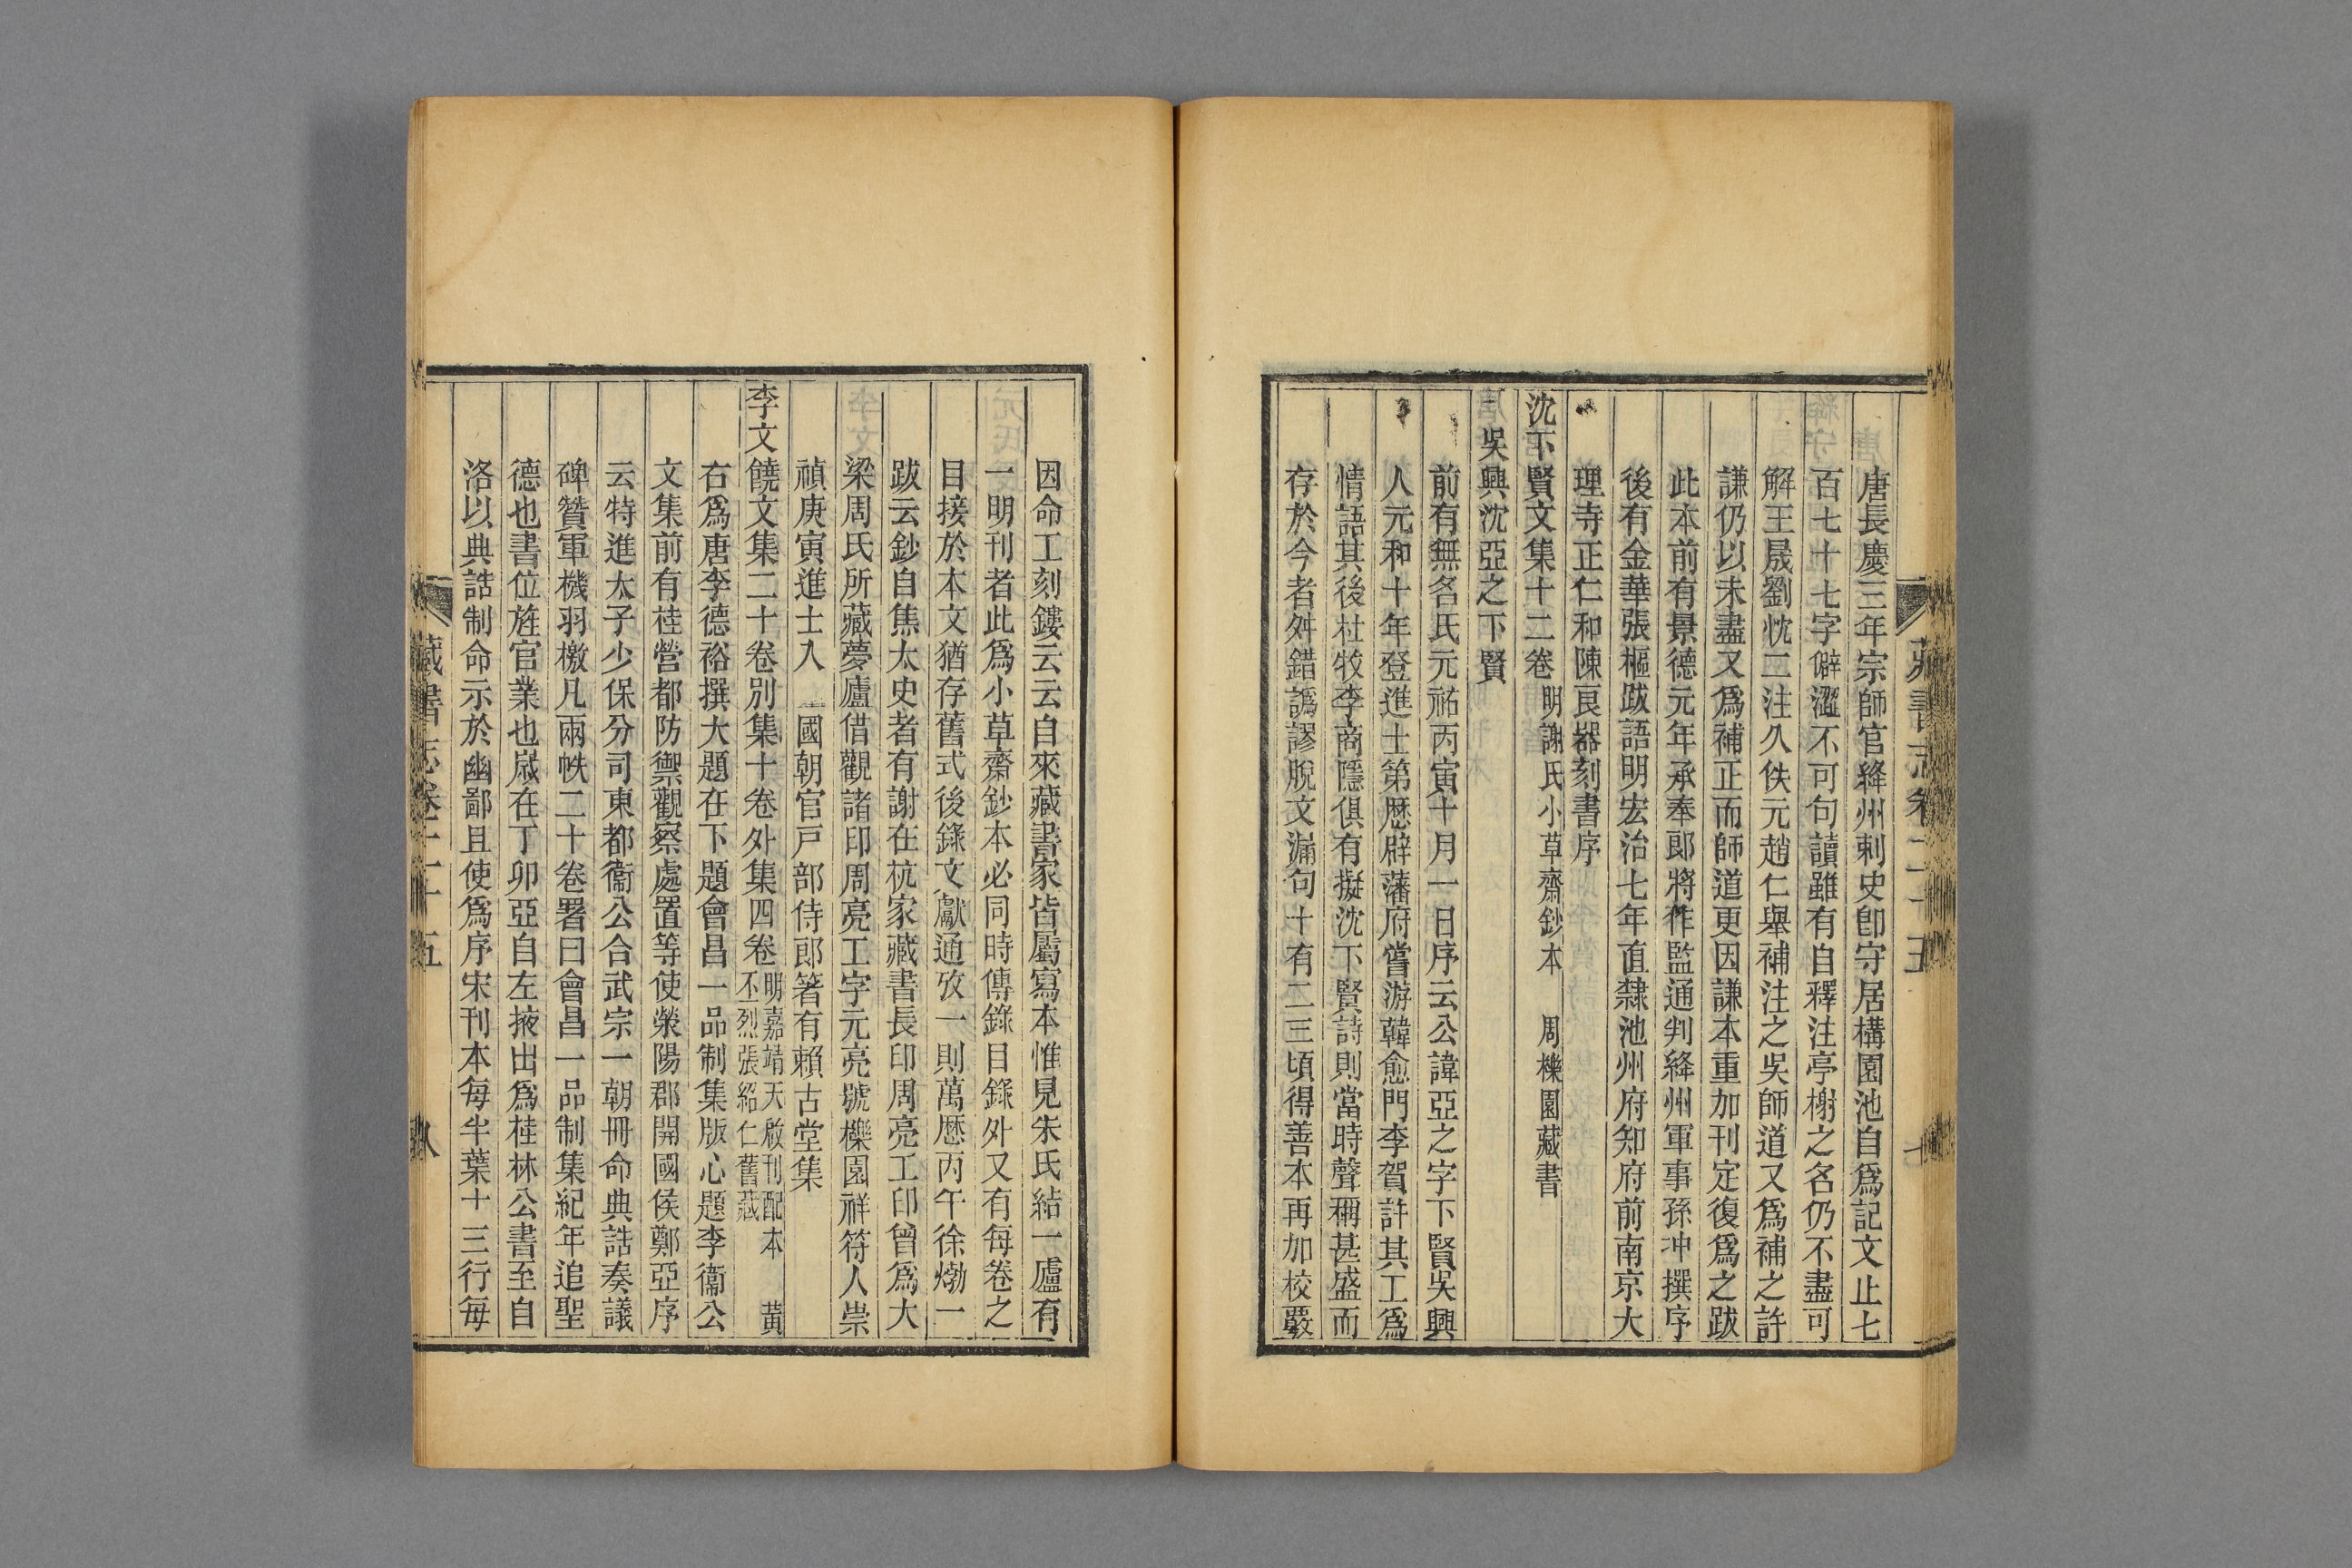 藏書志卷二十五
七
唐長慶三年宗師官絳州刺史卽守居構園池自爲記文止七
百七十七字僻澀不可句讀雖有自釋注亭榭之名仍不盡可
解王晟劉忱二注久佚元趙仁舉補注之吳師道又爲補之許
謙仍以未盡又爲補正而師道更因謙本重加刊定復爲之跋
此本前有景德元年承奉郞將作監通判絳州軍事孫冲撰序
後有金華張樞跋語明宏治七年直隸池州府知府前南京大
理寺正仁和陳良器刻書序
沈下賢文集十二卷 明謝氏小草齋鈔本 周櫟園藏書
吳興沈亞之下賢
前有無名氏元祐丙寅十月一日序云公諱亞之字下賢吳興
人元和十年登進士第歷辟藩府嘗游韓愈門李賀許其工爲
情語其後杜牧李商隱俱有擬沈下賢詩則當時聲稱甚盛而
存於今者舛錯譌謬脫文漏句十有二三頃得善本再加校覈
因命工刻鏤云云自來藏書家皆屬寫本惟見朱氏結一廬有
一明刊者此爲小草齋鈔本必同時傳錄目錄外又有每卷之
目接於本文猶存舊式後錄文獻通攷一則萬歷丙午徐㶿一
跋云鈔自焦太史者有謝在杭家藏書長印周亮工印曾爲大
梁周氏所藏夢廬借觀諸印周亮工字元亮號櫟園祥符人崇
禎庚寅進士入 國朝官戶部侍郎箸有賴古堂集
李文饒文集二十卷別集十卷外集四卷 明嘉靖天啟刊配本 黃
丕烈張紹仁舊藏
右爲唐李德裕撰大題在下題會昌一品制集版心題李衞公
文集前有桂營都防禦觀察處置等使滎陽郡開國侯鄭亞序
云特進太子少保分司東都衞公合武宗一朝冊命典誥奏議
碑贊軍機羽檄凡兩帙二十卷署曰會昌一品制集紀年追聖
德也書位旌官業也歲在丁卯亞自左掖出爲桂林公書至自
洛以典誥制命示於幽鄙且使爲序宋刊本每半葉十三行每
藏書志卷二十五
八